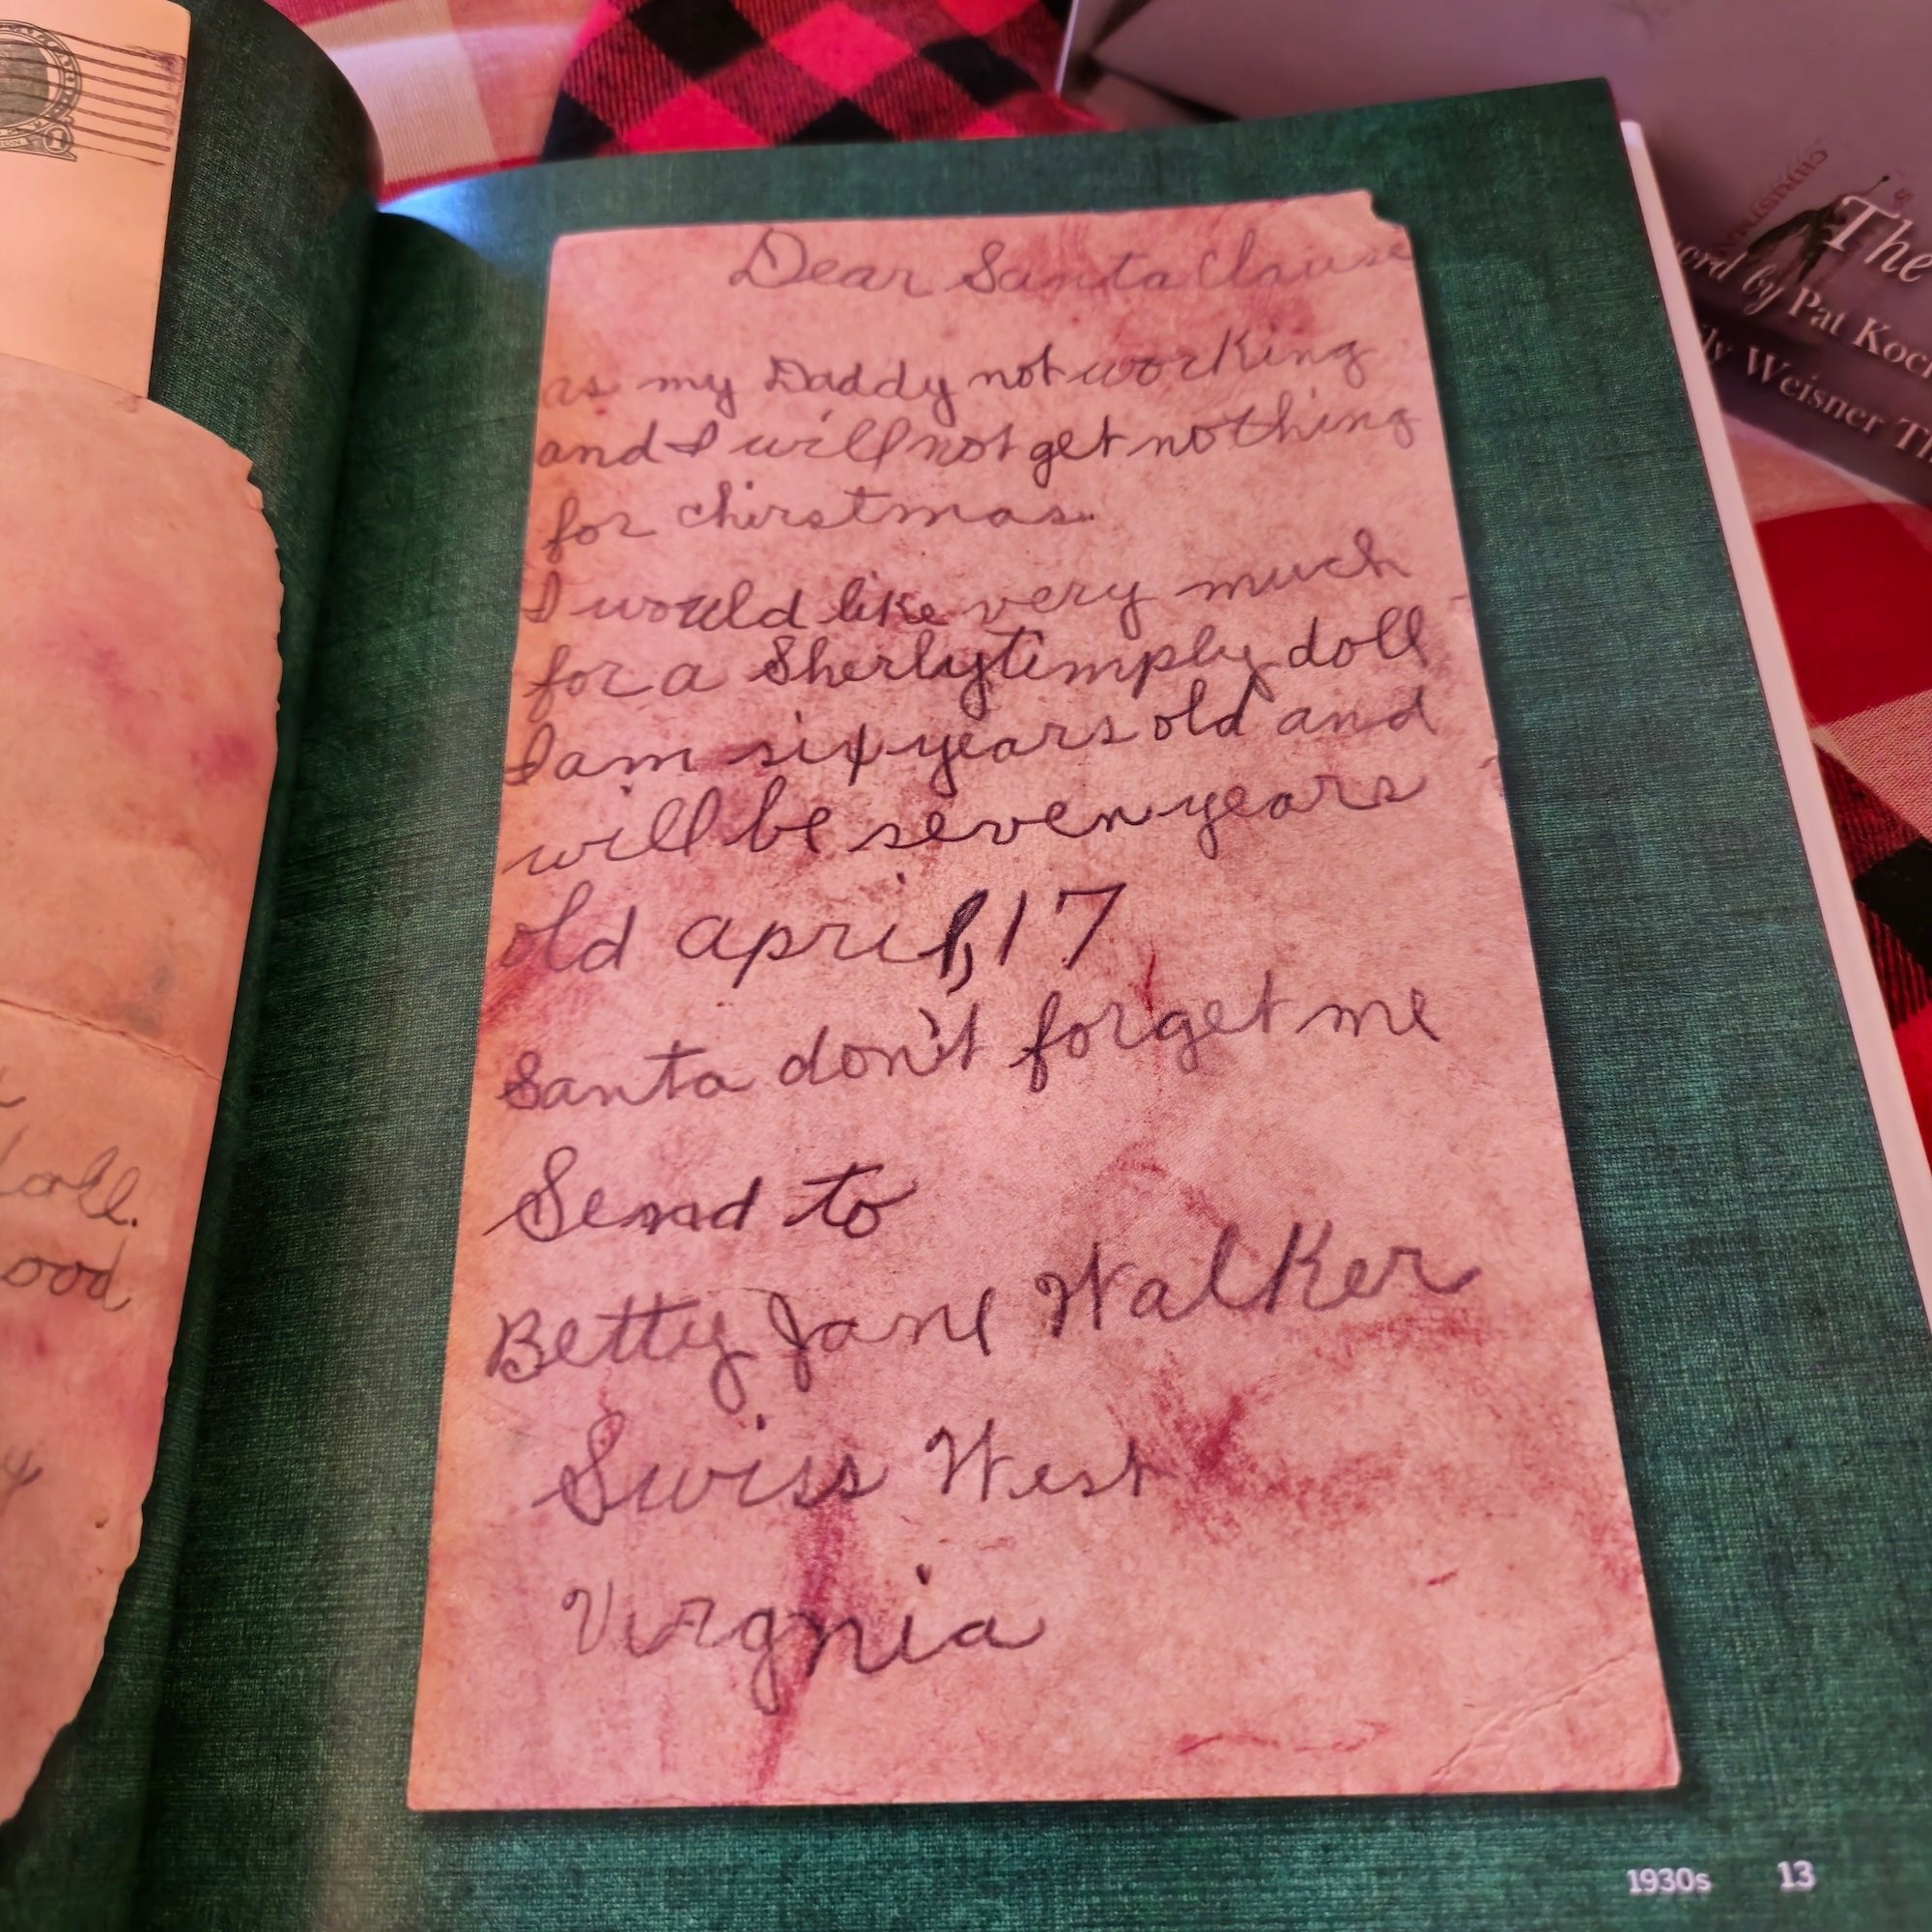 Dear Santa Clause
as my Daddy not working
and I will not get nothing
for chirstmas.
I would like very much
for a Sherlytimply doll
I am six years old and
will be seven years
old april, 17
Santa don't forget me
Send to
Betty Jane Walker
Swiss West
Virgnia
1930s 13
The
by Pat Koch
Weisner
ood